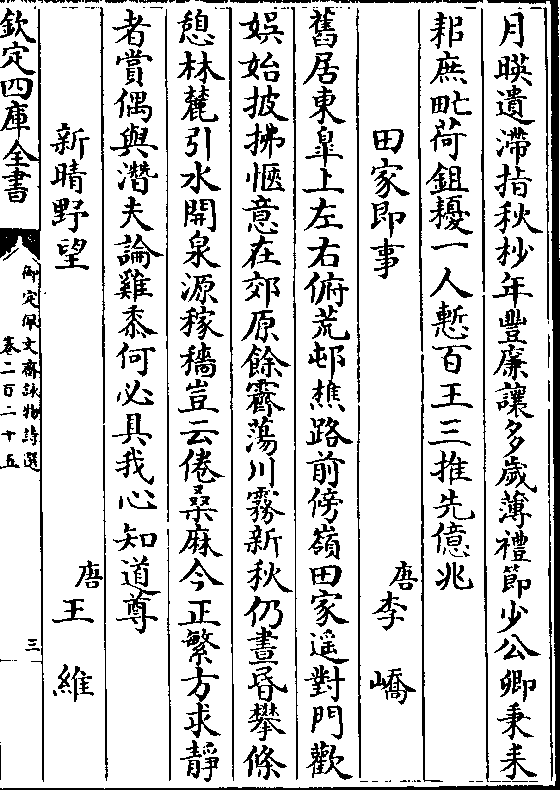 月暎遺滯指秋杪年豐廉讓多歲薄禮節少公卿秉耒
耜庶甿荷鉏耰一人慙百王三推先億兆
田家即事　唐李嶠
舊居東皐上左右俯荒邨樵路前傍嶺田家遥對門歡
娯始披拂愜意在郊原餘霽蕩川霧新秋仍晝昏攀條
憩林麓引水開泉源稼穡豈云倦桑麻今正繁方求靜
者賞偶與潛夫論雞黍何必具我心知道尊
新晴野望　唐王維
欽定四庫全書
御定佩文齋詠物詩選
卷二百二十五
三